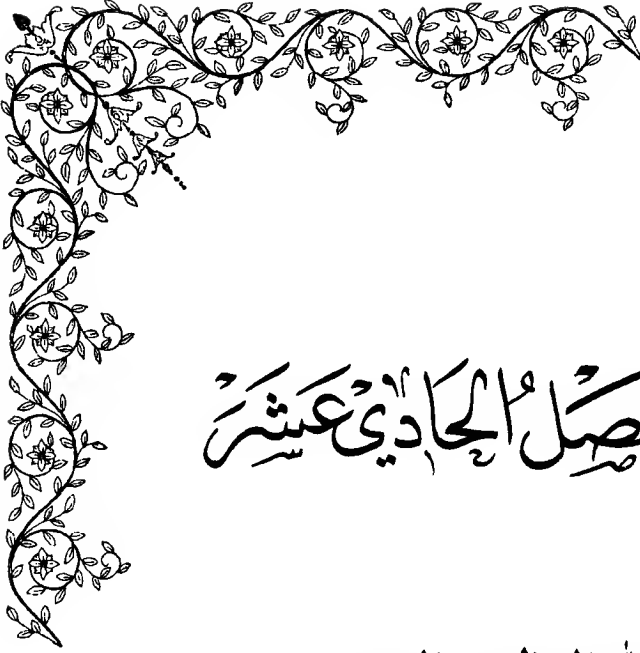 صَلُ الحَادِيْ عَشَرَ